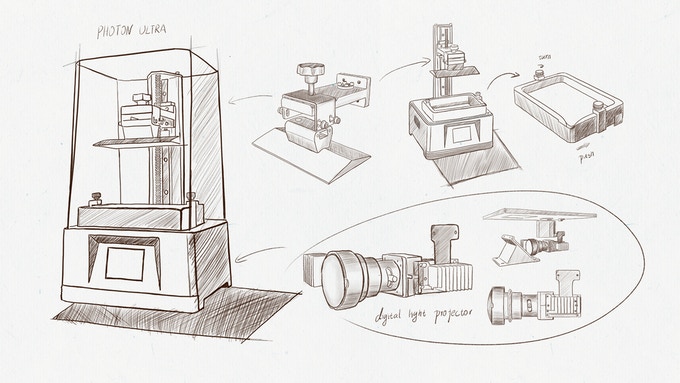 PHOTON ULTRA
turn
push
digital light projector